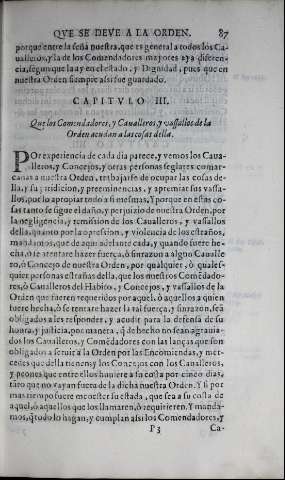 QVE SE DEVE A LA ORDEN. 87
porque entre la seña nuestra, que es general a todos los Ca-
ualleros, y la de los Comendadores mayores aya diferen-
cia, segun que la ay en el estado, y Dignidad, pues que en
nuestra Orden siempre assi fue guardado.
CAPITVLO III.
Que los Comendadores, y Caualleros, y vassallos de la
Orden acudan a las cosas della.
POr experiencia de cada dia parece, y vemos los Caua-
lleros, y Concejos, y otras personas seglares comar-
canas a nuestra Orden, trabajarse de ocupar las cosas de-
lla, y su juridicion, y preeminencias, y apremiar sus vassa-
llos, por lo apropiar todo a si mesmas, Y porque en estas co-
sas tanto se sigue el daño, y perjuizio de nuestra Orden, por
la negligencia, y remission de los Caualleros, y vassallos
della, quanto por la opression, y violencia de los estraños,
mandamos, que de aqui adelante cada, y quando fuere he-
cha, ò se atentare hazer fuerça, ò sinrazon a algun Caualle-
ro, ò Concejo de nuestra Orden, por qualquier, ò quales-
quier personas estrañas della, que los nuestros Comẽdado-
res, ò Caualleros del Habito, y Concejos, y vassallos de la
Orden que fueren requeridos por aquel, ò aquellos a quien
fuere hecha, ò se tentare hazer la tal fuerça, y sinrazon, seã
obligados a les responder, y acudir para la defensa de su
honra, y justicia, por manera, q̃ de hecho no sean agrauia-
dos los Caualleros, y Comẽdadores con las lanças que son
obligados a seruir a la Orden por las Encomiendas, y mer-
cedes que della tienen, y los Concejos con los Caualleros,
y peones que entre ellos huuiere a su costa por cinco dias,
tãto que no vayan fuera de la dicha nuestra Orden. Y si por
mas tiempo fuere menester su estada, que sea a su costa de
aquel, ò aquellos que los llamaren, ò requirieren. Y manda-
mos, q̃ todo lo hagan, y cumplan assi los Comendadores, y
P 3 Ca-